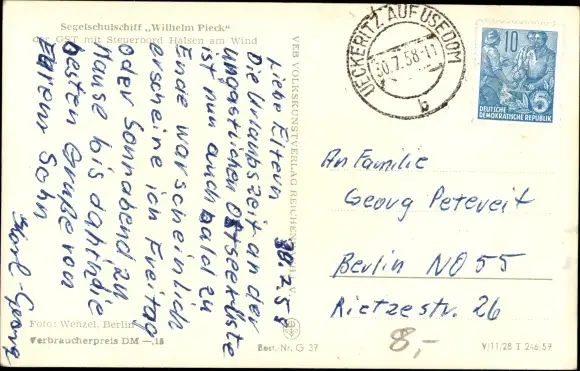 Segelschulschiff „Wilhelm Pieck“
der GST mit Steuerbord Halsen am Wind
30.7.58
Liebe Eltern
Die Urlaubszeit an der
ungastlichen Ostseeküste
ist nun auch bald zu
Ende warscheinlich
erscheine ich Freitag
oder Sonnabend zu
Hause bis dahin die
besten Grüße von
Eurem Sohn
Karl-Georg
Foto: Wenzel, Berlin
Verbraucherpreis DM —,15
VEB VOLKSKUNSTVERLAG REICHENBACH I. V.
Best.-Nr. G 37
UECKERITZ AUF USEDOM
30.7.58-11
b
10
5
DEUTSCHE
DEMOKRATISCHE REPUBLIK
An Familie
Georg Petereit
Berlin NO 55
Rietzestr. 26
8,-
V/11/28 T 246/57